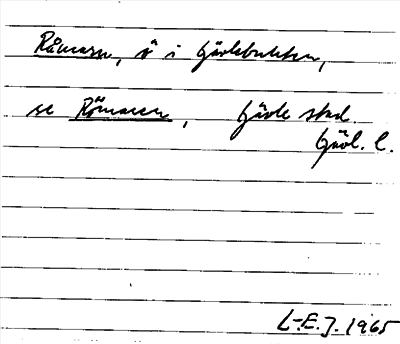 Råmaren, ö i Gävlebukten,
se Römaren, Gävle stad.
Gävl. l.
L-E.J. 1965